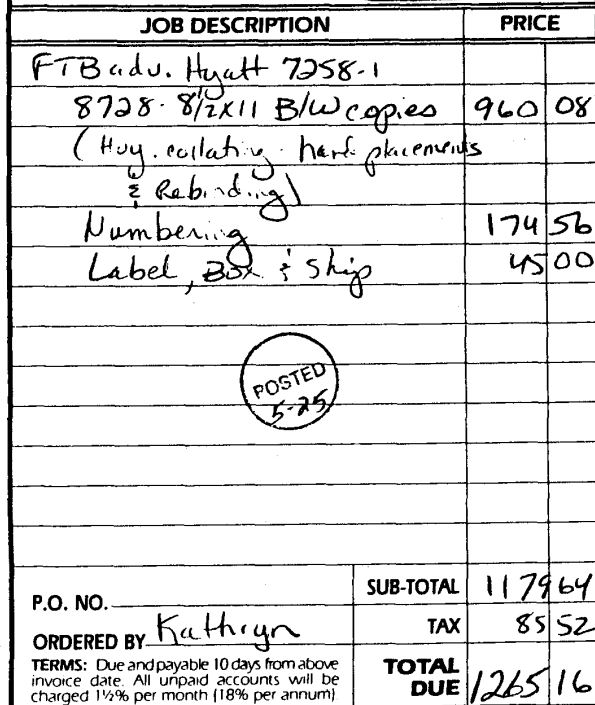 JOB DESCRIPTION PRICE
FTB adv. Hyatt 7258-1
8728 - 8 1/2 X 11 B/W copies 960 08
(Hvy. collating - hand placements
& Rebinding)
Numbering 174 56
Label, Box & Ship 45 00
POSTED
5-25
SUB-TOTAL 1179 64
P.O. NO.
TAX 85 52
ORDERED BY Kathryn
TERMS: Due and payable 10 days from above
invoice date. All unpaid accounts will be
charged 1½% per month (18% per annum)
TOTAL
DUE 1265 16